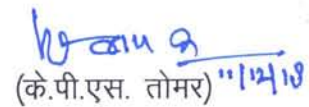 (के.पी.एस. तोमर) 11/12/18